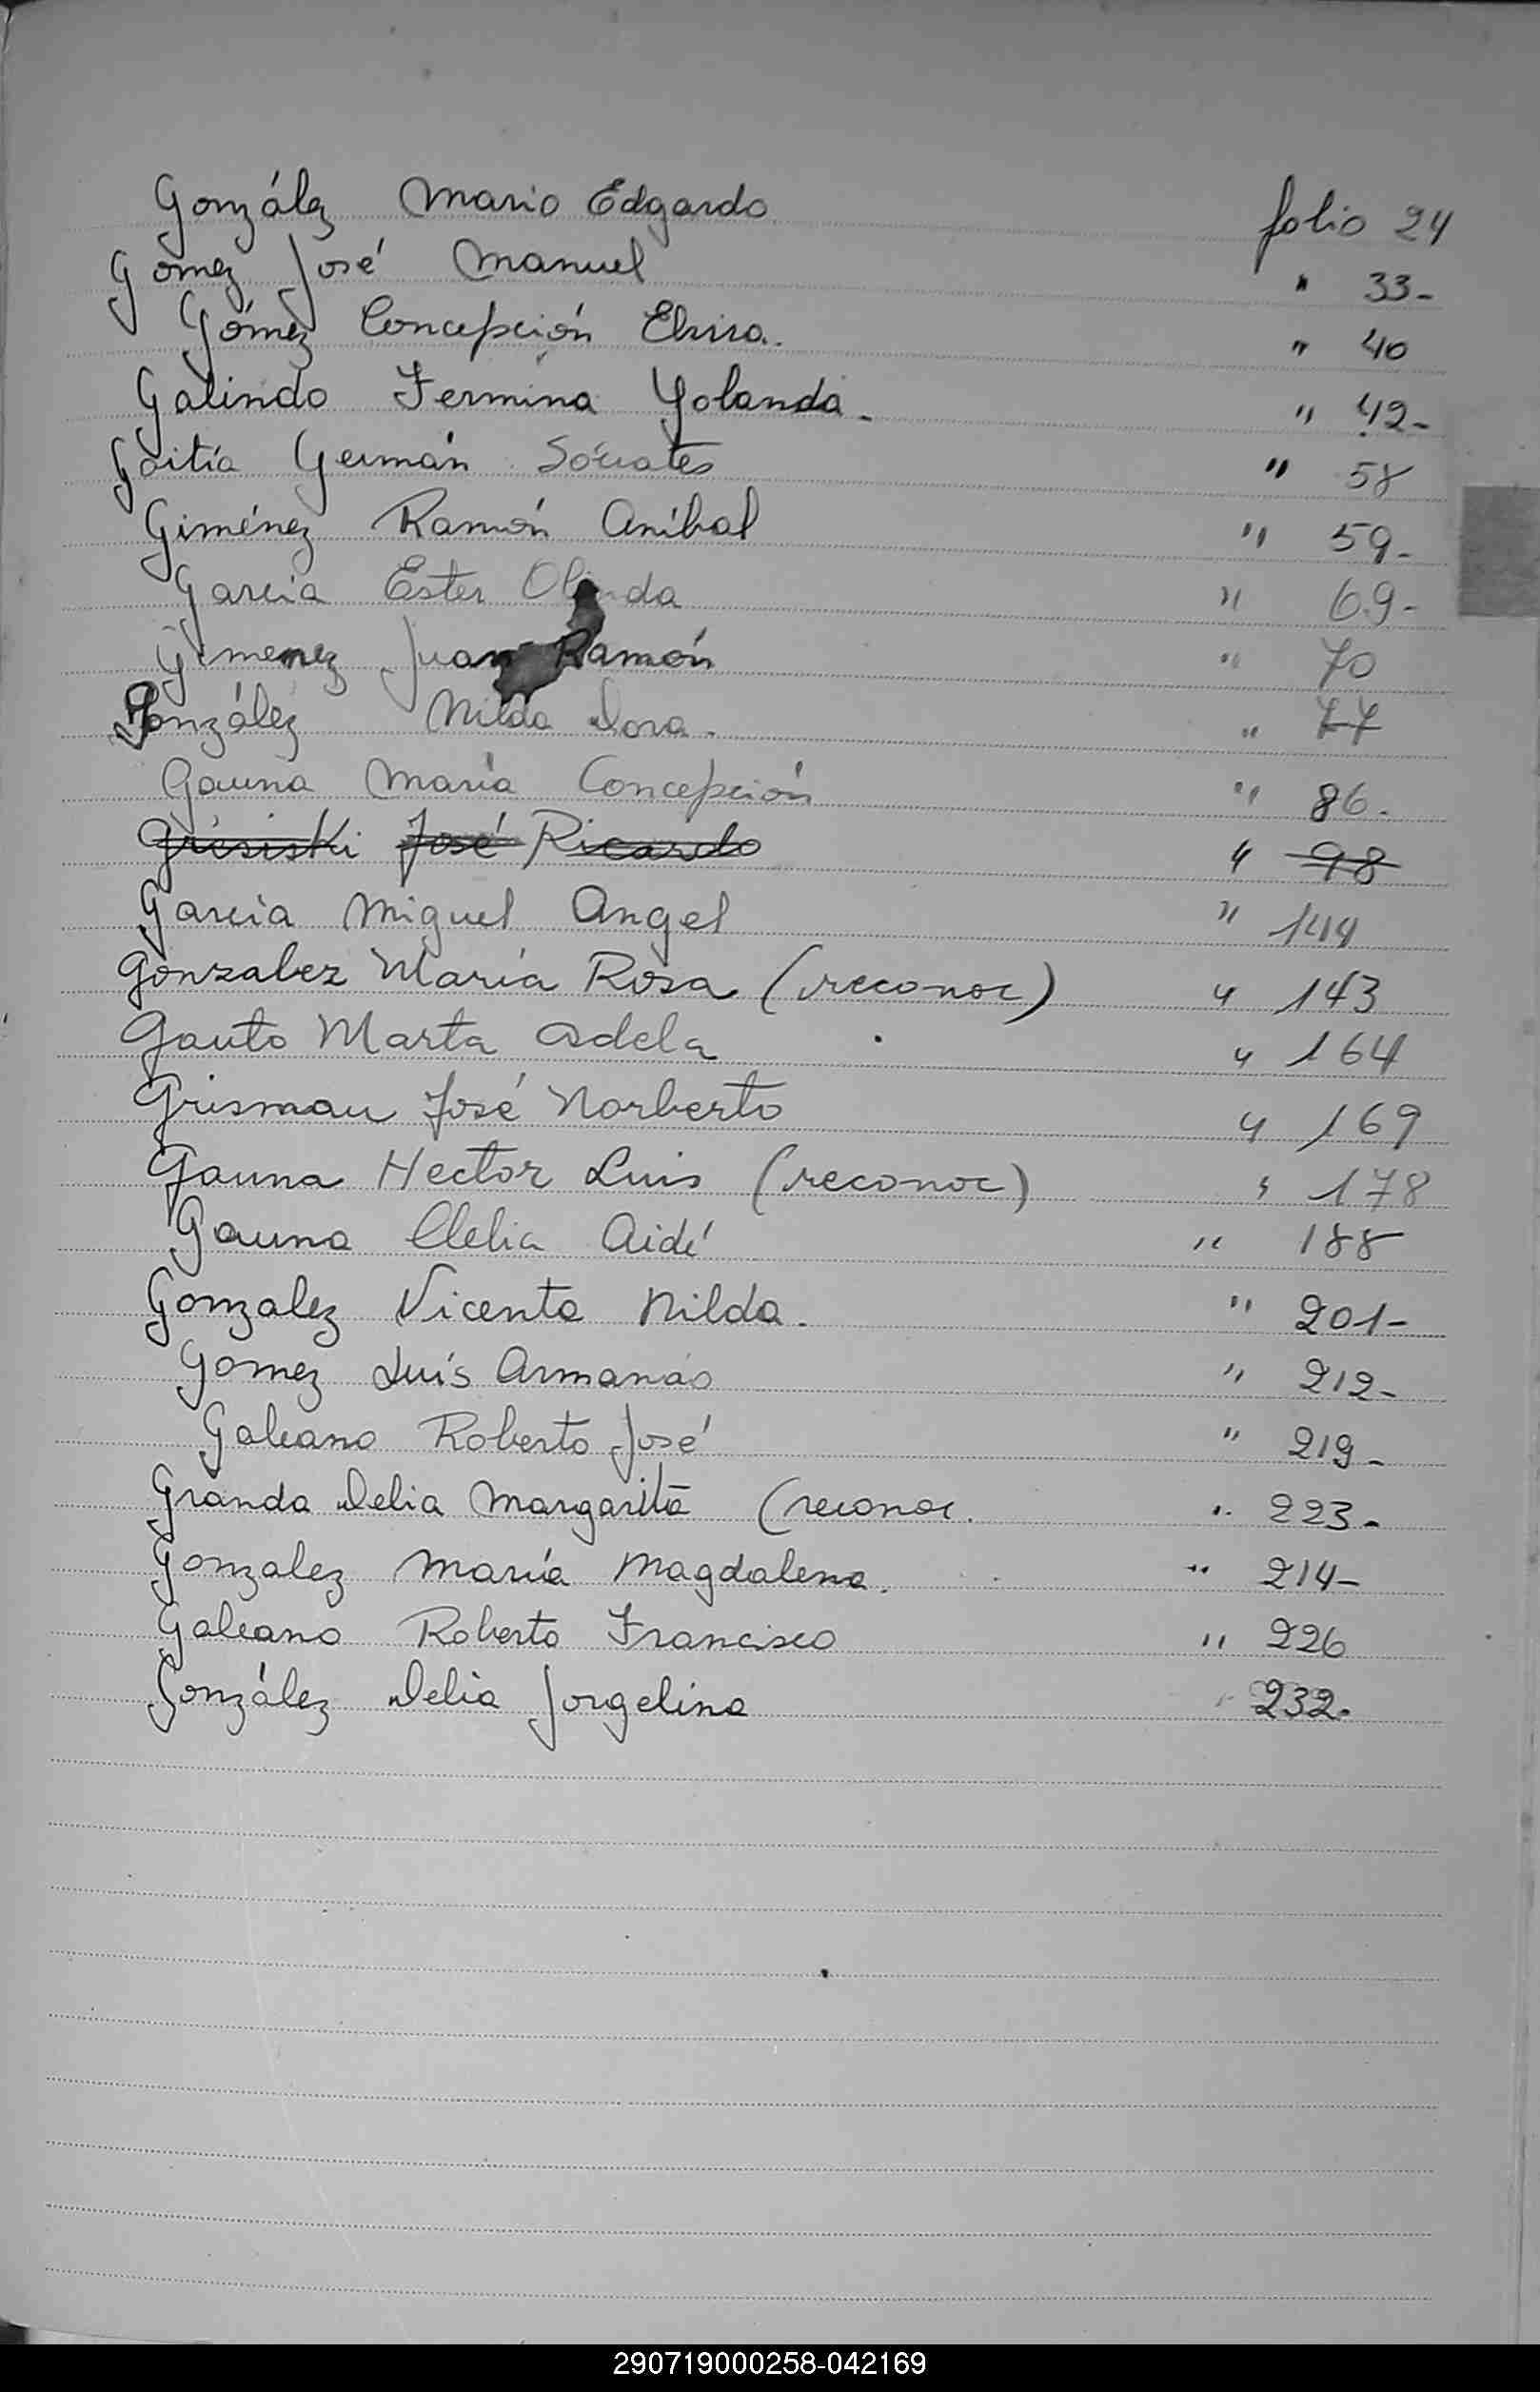 González Mario Edgardo folio 24
Gómez José Manuel " 33-
Gómez Concepción Elvira. " 40
Galindo Fermina Yolanda - " 42-
Goitía Germán Sócrates " 58
Giménez Ramón Aníbal " 59-
García Ester Olinda " 69-
Gimenez Juan Ramón " 70
González Nilda Dora. " 77
Gauna María Concepción " 86.
Griesiski José Ricardo " 98
García Miguel Angel " 144
Gonzalez María Rosa (reconoc) " 143
Gauto Marta Adela " 164
Grisman José Norberto " 169
Gauna Hector Luis (reconoc) " 178
Gauna Clelia Aidé " 188
Gonzalez Vicenta Nilda. " 201-
Gomez Luís Armando " 212-
Galeano Roberto José " 219-
Granda Delia Margarita (reconoc. " 223-
Gonzalez María Magdalena. " 214-
Galeano Roberto Francisco " 226
González Delia Jorgelina " 232.
290719000258-042169